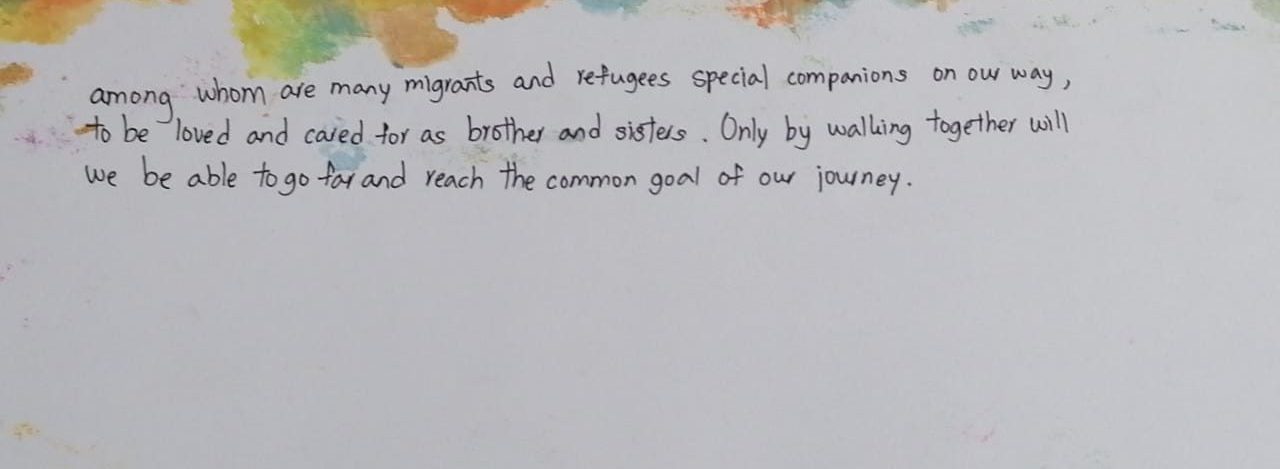 among whom are many migrants and refugees special companions on our way,
to be loved and cared for as brother and sisters. Only by walking together will
we be able to go far and reach the common goal of our journey.